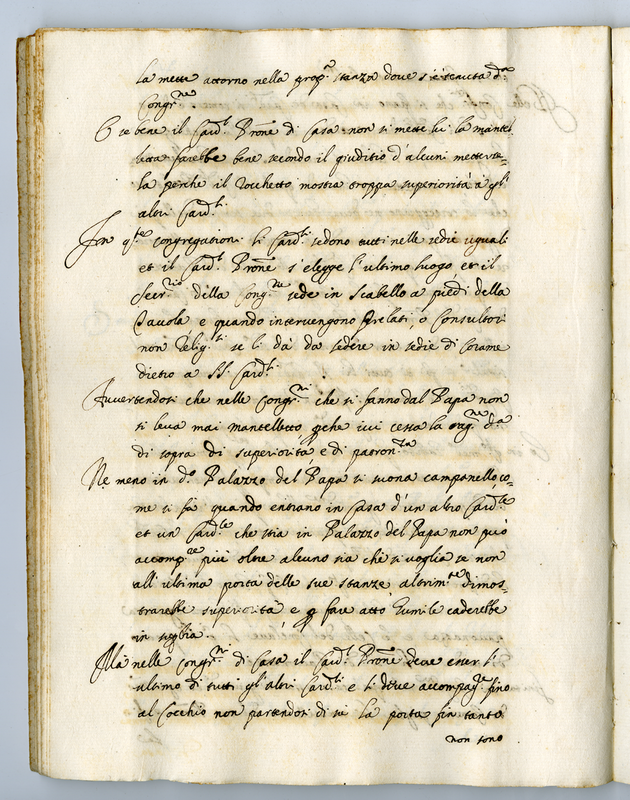 la mette attorno nella prop.a stanza dove s'è tenuta d.a
Congr.ne
E se bene il Card.l Prone di Casa non si mette lui la mantel
letta sarebbe bene secondo il giuditio d'alcuni metterse=
la perche il Rocchetto mostra troppa superiorità à gl'
altri Card.li
In q.te congregationi li Card.li sedono tutti nelle sedie uguali
et il Card.l Prone s'elegge l'ultimo luogo, et il
Secr.rio della Cong.ne sede in scabello a piedi della
Tavola e quando intervengono Prelati, ò Consultori
non Relig.si se li dà da sedere in sedie di corame
dietro a SS.ri Card.li
Avvertendosi che nelle Congr.ni che si fanno dal Papa non
si leva mai mantelletto, pche ivi cessa la rag.ne d.a
di sopra di superiorità e di patron.za
Ne meno in d.o Palazzo del Papa si suona campanello, co=
me si fà quando entrano in Casa d'un altro Card.le
et un Card.le che stia in Palazzo del Papa non può
accomp.re più oltre alcuno sia chi si voglia se non
all'ultima porta delle sue stanze, altrim.te dimos=
trarebbe superiorità e p fare atto humile caderebbe
in
Mà nelle Congr.ni di Casa il Card.l Prone deve esser l'
ultimo di tutti gl'altri Card.li e li deve accompag.re fino
al Cocchio non partendosi di sù la porta fin tanto
non sono